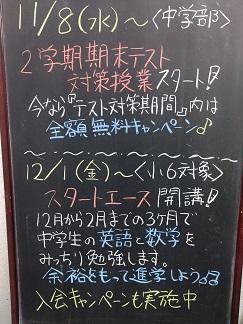 11/8(水)～〈中学部〉
2学期期末テスト
対策授業スタート!
今なら『テスト対策期間』内は
全額無料キャンペーン♪
～～～～～～～～
12/1(金)～〈小6対象〉
スタートエース開講!
12月から2月までの3ヶ月で
中学生の英語と数学を
みっちり勉強します。
余裕をもって進学しよう♫
入会キャンペーンも実施中